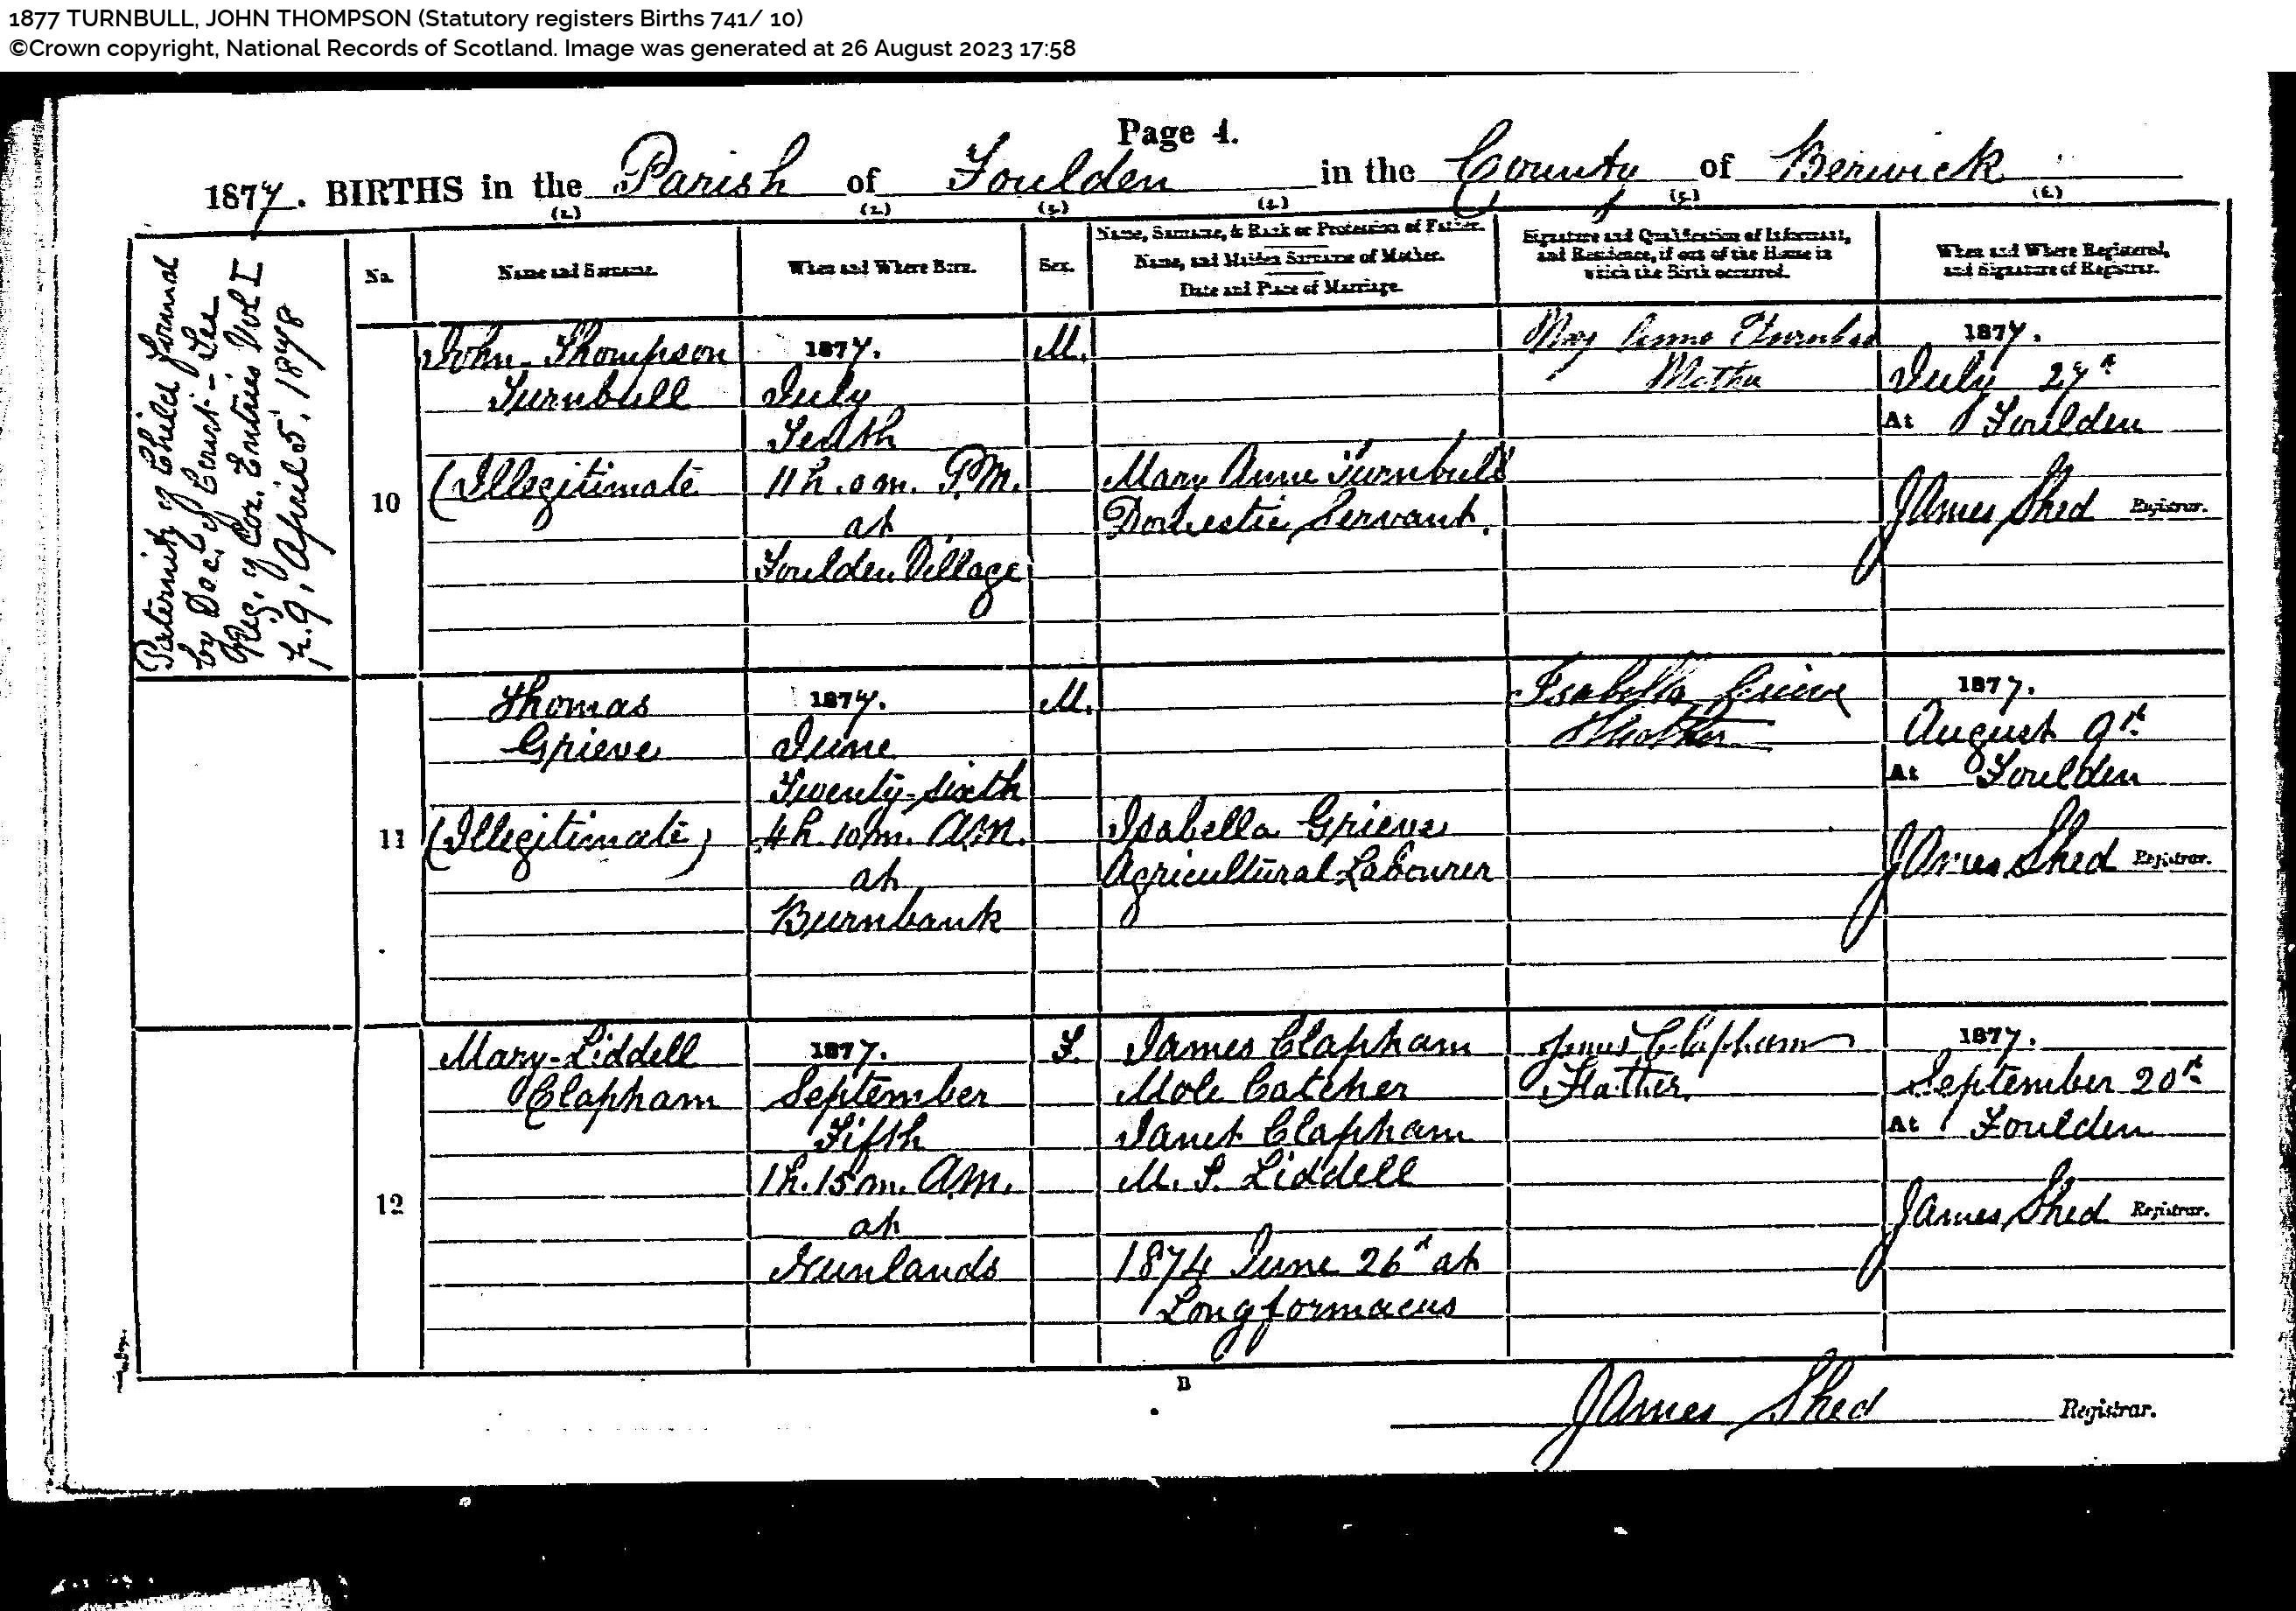 1877 TURNBULL, JOHN THOMPSON (Statutory registers Births 741/ 10)
©Crown copyright, National Records of Scotland. Image was generated at 26 August 2023 17:58
Page 4.
1877. BIRTHS in the Parish of Foulden in the County of Berwick
(1.) (2.) (3.) (4.) (5.) (6.)
No.
Name and Surname.
When and Where Born.
Sex.
Name, Surname, & Rank or Profession of Father.
Name, and Maiden Surname of Mother.
Date and Place of Marriage.
Signature and Qualification of Informant,
and Residence, if out of the House in
which the Birth occurred.
When and Where Registered,
and Signature of Registrar.
Paternity of Child found
by Dec. of Court - See
Reg. of Cor. Entries Vol I
p. 9, April 5, 1878
10
John Thompson
Turnbull
(Illegitimate
1877.
July
Tenth
11 h. 0 m. P.M.
at
Foulden Village
M.
Mary Anne Turnbull
Domestic Servant.
Mary Anne Turnbull
Mother
1877.
July 27th
At Foulden
James Shed Registrar.
11
Thomas
Grieve
(Illegitimate)
1877.
June
Twenty-sixth
4 h. 10 m. A.M.
at
Burnbank
M.
Isabella Grieve
Agricultural Labourer
Isabella Grieve
Mother
1877.
August 9th
At Foulden
James Shed Registrar.
12
Mary-Liddell
Clapham
1877.
September
Fifth
1 h. 15 m. A.M.
at
Nunlands
F.
James Clapham
Mole Catcher
Janet Clapham
M. S. Liddell
1874 June 26th at
Longformacus
James Clapham
Father.
1877.
September 20th
At Foulden
James Shed Registrar.
B
James Shed Registrar.